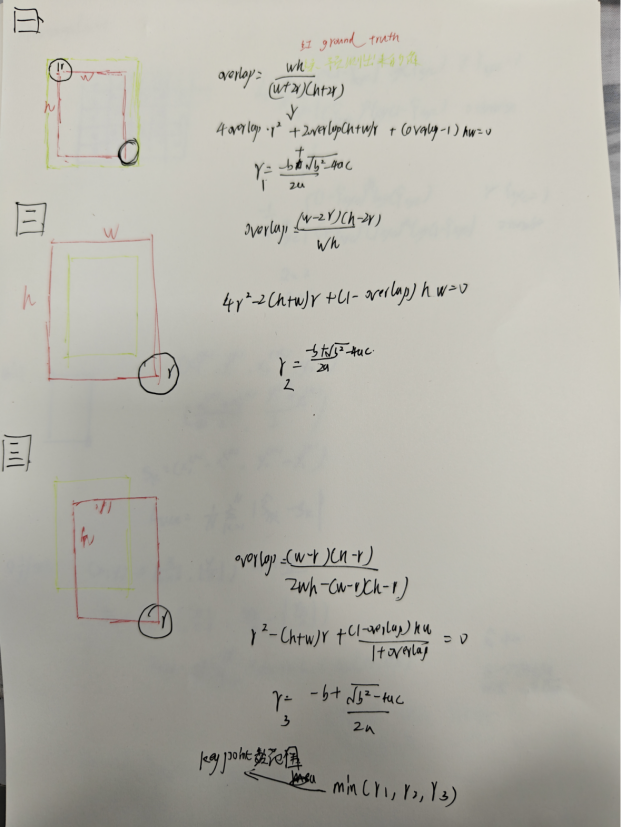 一
红 ground truth
r
w
h
overlap = wh / (w+2r)(h+2r)
4overlap·r² + 2overlap(h+w)r + (overlap-1)hw=0
r1 = -b+√b²-4ac / 2a
二
w
h
r
overlap = (w-2r)(h-2r) / wh
4r²-2(h+w)r+(1-overlap)hw=0
r2 = -b+√b²-4ac / 2a
三
w
h
r
overlap = (w-r)(h-r) / 2wh-(w-r)(h-r)
r²-(h+w)r + (1-overlap)hw / 1+overlap = 0
r3 = -b+√b²-4ac / 2a
keypoint
min(r1, r2, r3)